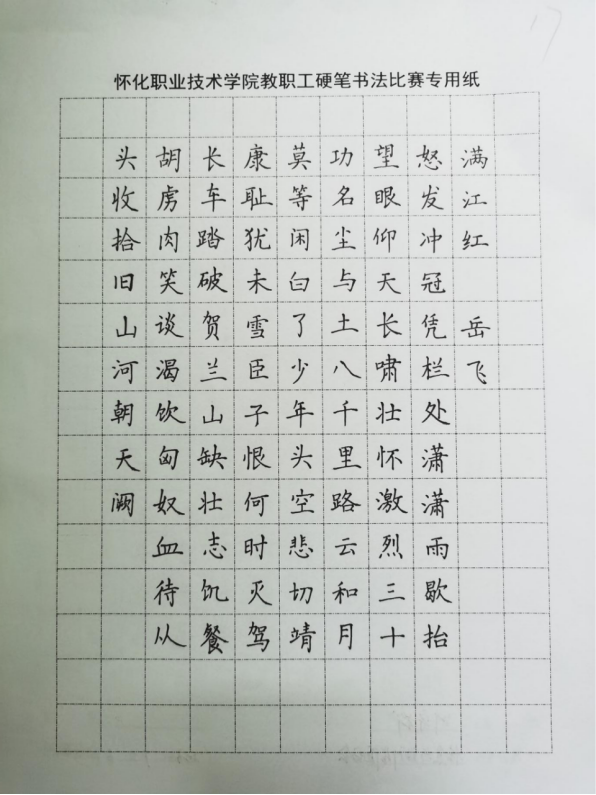 怀化职业技术学院教职工硬笔书法比赛专用纸
17
满江红 岳飞
怒发冲冠凭栏处潇潇雨歇抬
望眼仰天长啸壮怀激烈三十
功名尘与土八千里路云和月
莫等闲白了少年头空悲切靖
康耻犹未雪臣子恨何时灭驾
长车踏破贺兰山缺壮志饥餐
胡虏肉笑谈渴饮匈奴血待从
头收拾旧山河朝天阙